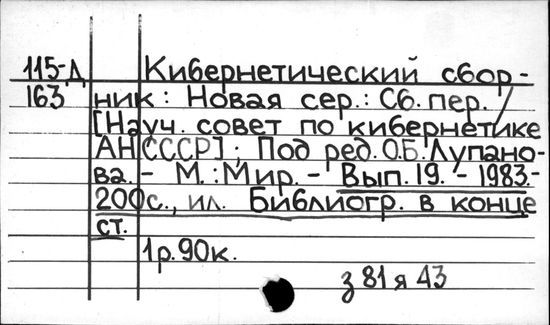 115-Д Кибернетический сбор-
163 ник: Новая сер.: Сб. пер. /
[Науч. совет по кибернетике
АН СССР]; Под ред. О.Б. Лупано-
ва. - М.: Мир. - Вып. 19. - 1983.-
200с., ил. Библиогр. в конце
ст.
1р. 90к.
з 81 я 43